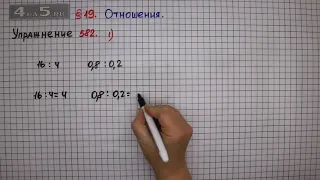 4 на 5.ru § 19. Отношения.
Упражнение 582. 1)
16 : 4 0,8 : 0,2
16 : 4 = 4 0,8 : 0,2 =